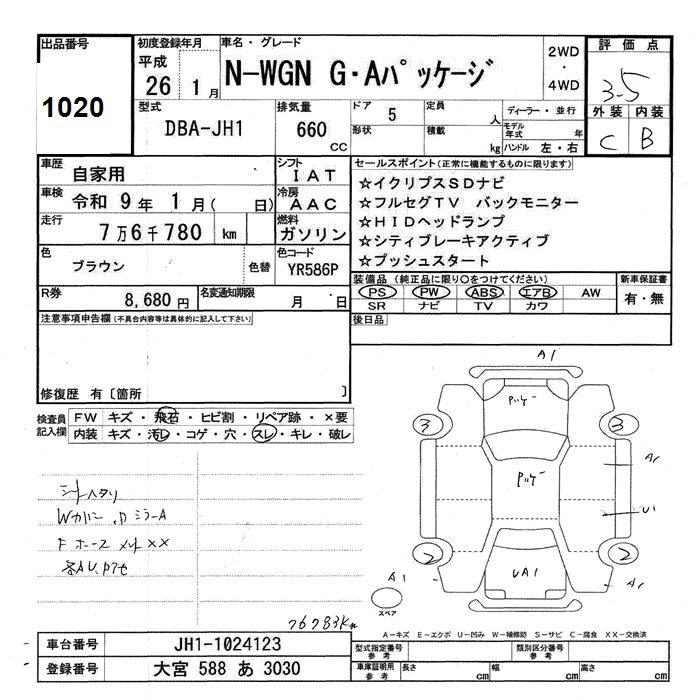 出品番号
1020
初度登録年月
平成
26 1月
車名・グレード
N-WGN G・Aパッケージ
2WD
・
4WD
評価点
3.5
外装 内装
C B
型式
DBA-JH1
排気量
660
CC
ドア 5
形状
定員
人
積載
kg
ディーラー・並行
モデル年式 年
ハンドル 左・右
車歴 自家用
シフト
IAT
車検 令和 9年 1月( 日)
冷房
AAC
走行 7万6千780 km
燃料
ガソリン
色 ブラウン 色替
色コード
YR586P
R券 8,680円
名変通知期限 月 日
セールスポイント(正常に機能するものに限ります)
☆イクリプスSDナビ
☆フルセグTV バックモニター
☆HIDヘッドランプ
☆シティブレーキアクティブ
☆プッシュスタート
装備品 (純正品に限り○をつけてください)
PS PW ABS エアB AW
SR ナビ TV カワ
新車保証書
有・無
後日品
注意事項申告欄(不具合内容等は具体的に記入して下さい)
修復歴 有〔箇所 〕
検査員
記入欄
FW キズ・飛石・ヒビ割・リペア跡・×要
内装 キズ・汚レ・コゲ・穴・スレ・キレ・破レ
シートヘタリ
Wカバー .DミラーA
Fホース メントXX
各AU.Pアセ
76783Km
A1
Pッケー
3
3
A1
Pッケー
U1
2
2
UA1
A1
スペア
A-キズ E-エクボ U-凹み W-補修跡 S-サビ C-腐食 XX-交換済
車台番号 JH1-1024123
登録番号 大宮 588 あ 3030
型式指定番号
参考
類別区分番号
参考
車庫証明用
参考
長さ cm 幅 cm 高さ cm